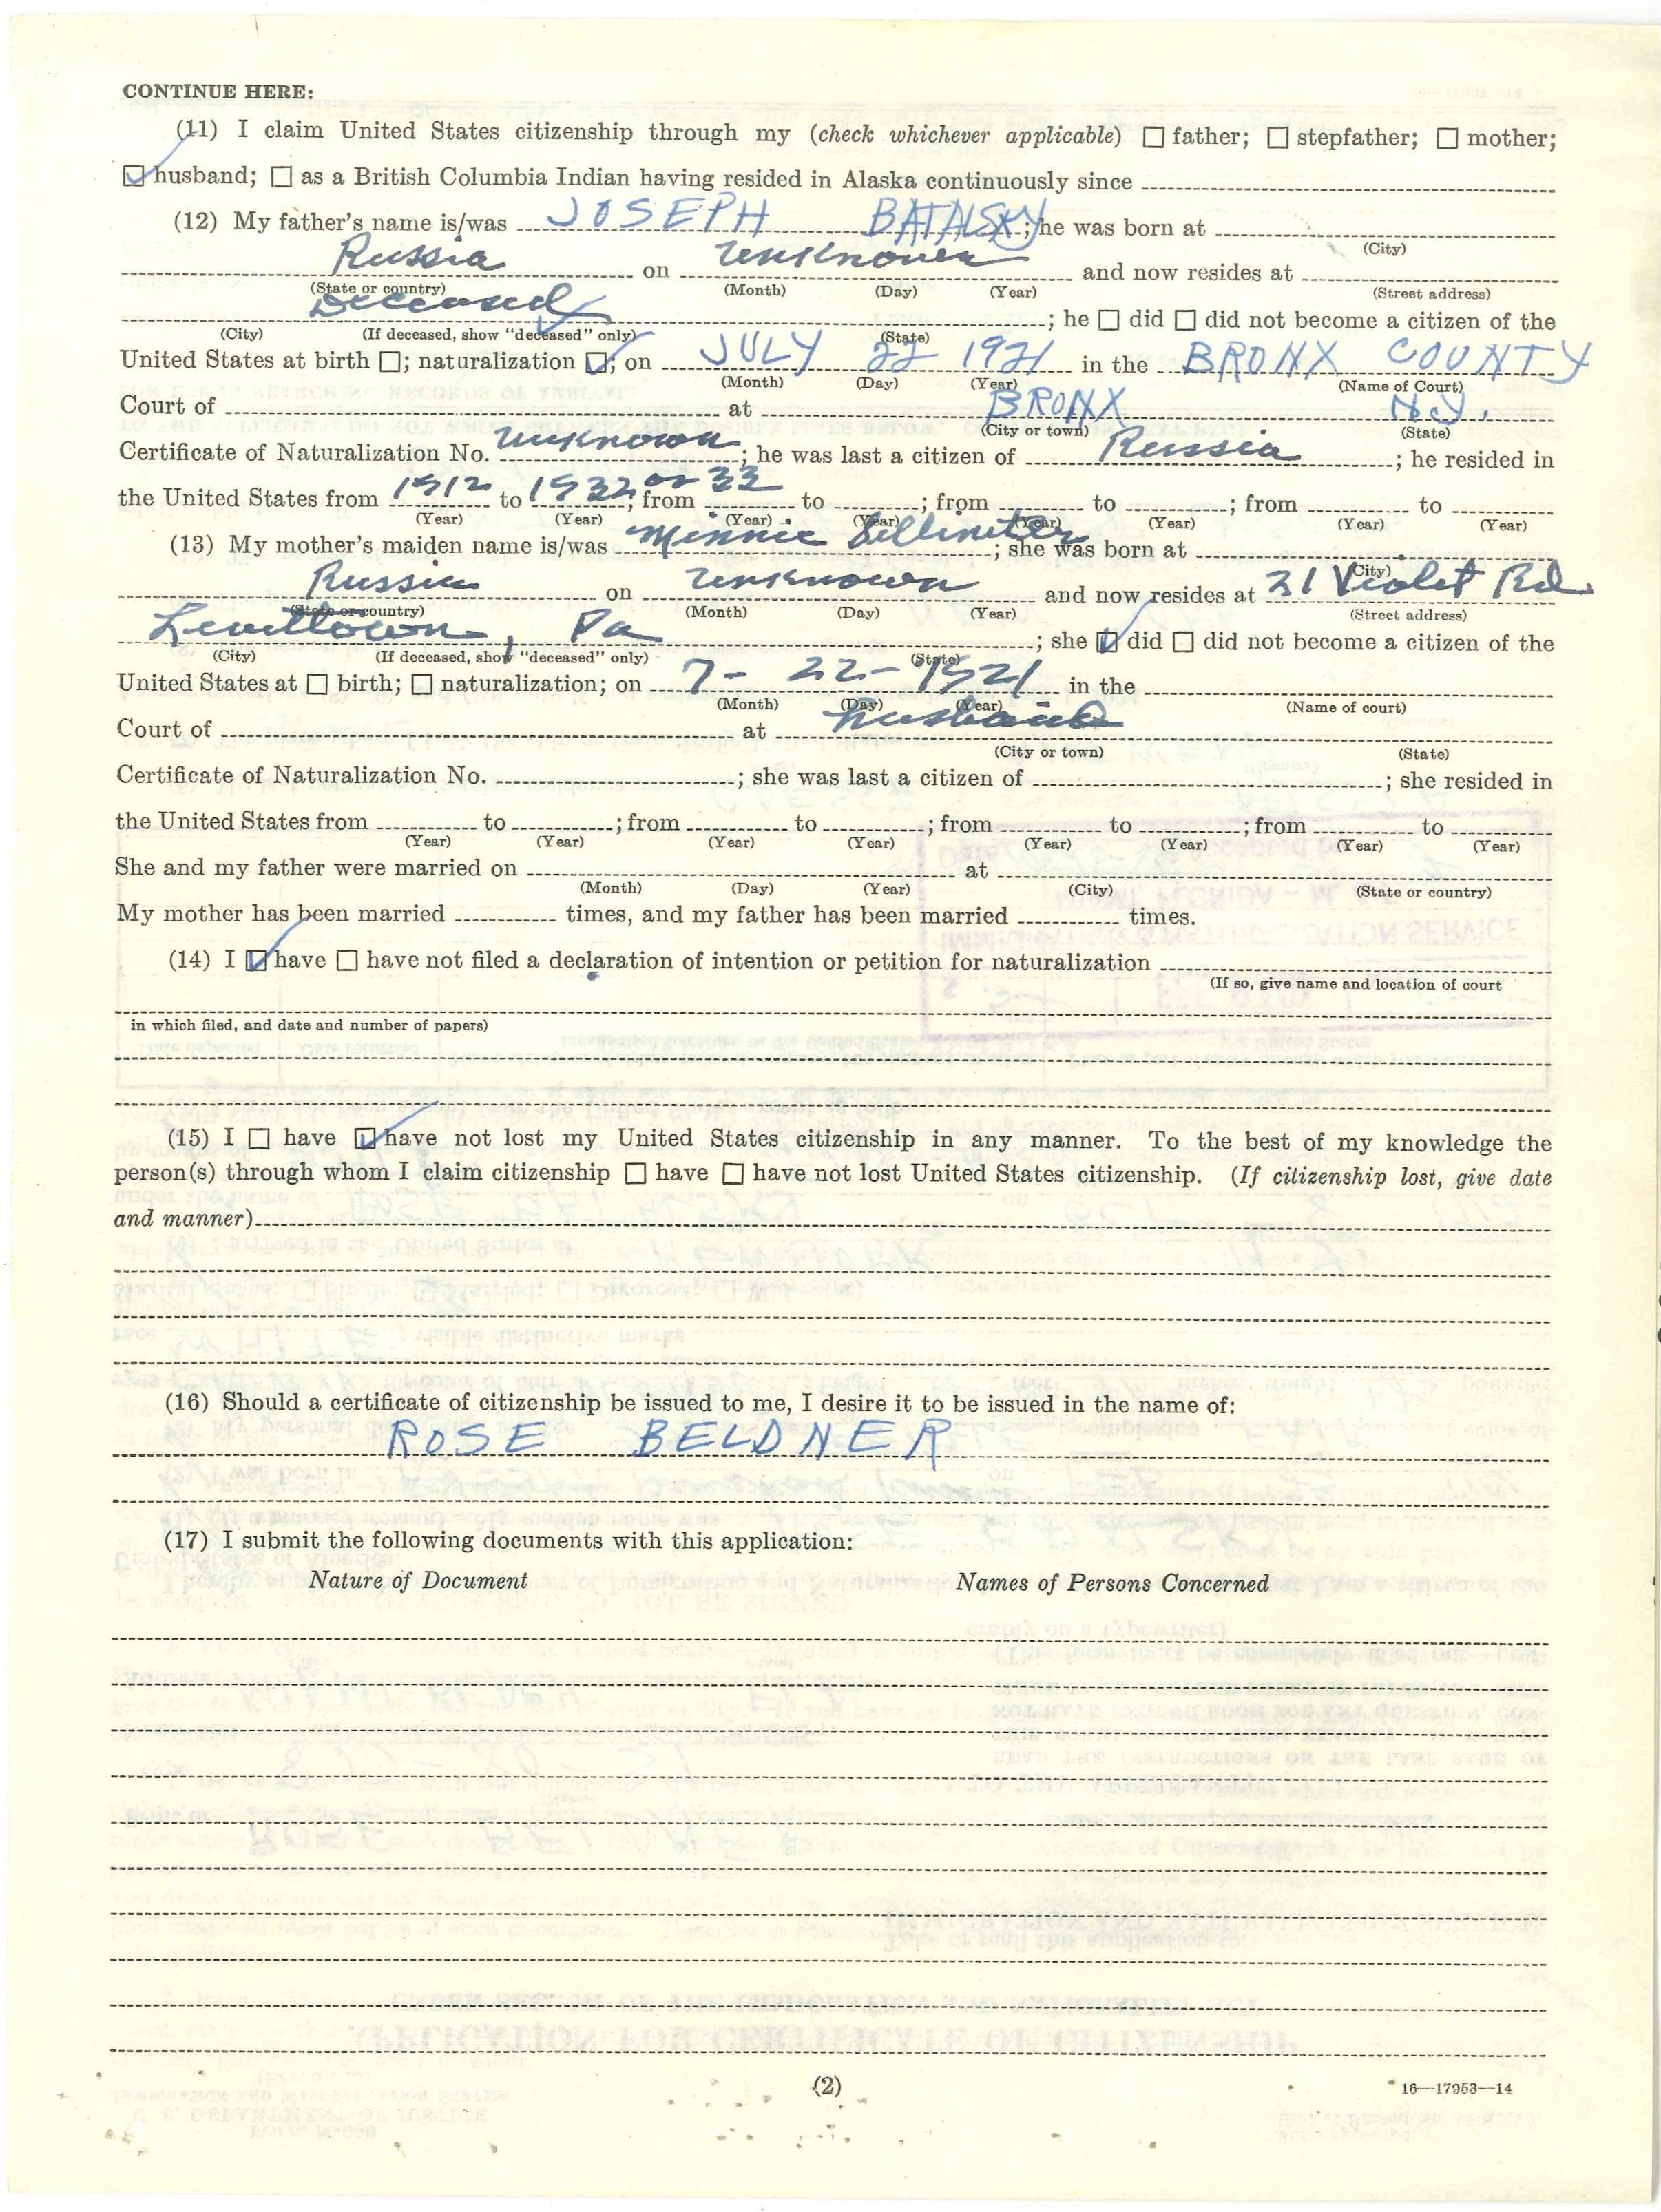 CONTINUE HERE:
(11) I claim United States citizenship through my (check whichever applicable) ☐ father; ☐ stepfather; ☐ mother;
☑ husband; ☐ as a British Columbia Indian having resided in Alaska continuously since
(12) My father's name is/was JOSEPH BATALSKY; he was born at
(City)
Russia on Unknown and now resides at
(State or country) (Month) (Day) (Year) (Street address)
Deceased ; he ☐ did ☐ did not become a citizen of the
(City) (If deceased, show "deceased" only) (State)
United States at birth ☐; naturalization ☑; on JULY 22 1921 in the BRONX COUNTY
(Month) (Day) (Year) (Name of Court)
Court of at BRONX N.Y.
(City or town) (State)
Certificate of Naturalization No. Unknown; he was last a citizen of Russia; he resided in
the United States from 1912 to 1932 or 33; from to ; from to ; from to
(Year) (Year) (Year) (Year) (Year) (Year) (Year) (Year)
(13) My mother's maiden name is/was Minnie ; she was born at
(City)
Russia on Unknown and now resides at 31 Violet Rd.
(State or country) (Month) (Day) (Year) (Street address)
Levittown, Pa ; she ☑ did ☐ did not become a citizen of the
(City) (If deceased, show "deceased" only) (State)
United States at ☐ birth; ☐ naturalization; on 7-22-1921 in the
(Month) (Day) (Year) (Name of court)
Court of at husband
(City or town) (State)
Certificate of Naturalization No. ; she was last a citizen of ; she resided in
the United States from to ; from to ; from to ; from to
(Year) (Year) (Year) (Year) (Year) (Year) (Year) (Year)
She and my father were married on at
(Month) (Day) (Year) (City) (State or country)
My mother has been married times, and my father has been married times.
(14) I ☑ have ☐ have not filed a declaration of intention or petition for naturalization
(If so, give name and location of court
in which filed, and date and number of papers)
(15) I ☐ have ☑ have not lost my United States citizenship in any manner. To the best of my knowledge the
person(s) through whom I claim citizenship ☐ have ☐ have not lost United States citizenship. (If citizenship lost, give date
and manner)
(16) Should a certificate of citizenship be issued to me, I desire it to be issued in the name of:
ROSE BELDNER
(17) I submit the following documents with this application:
Nature of Document Names of Persons Concerned
(2)
16—17953—14